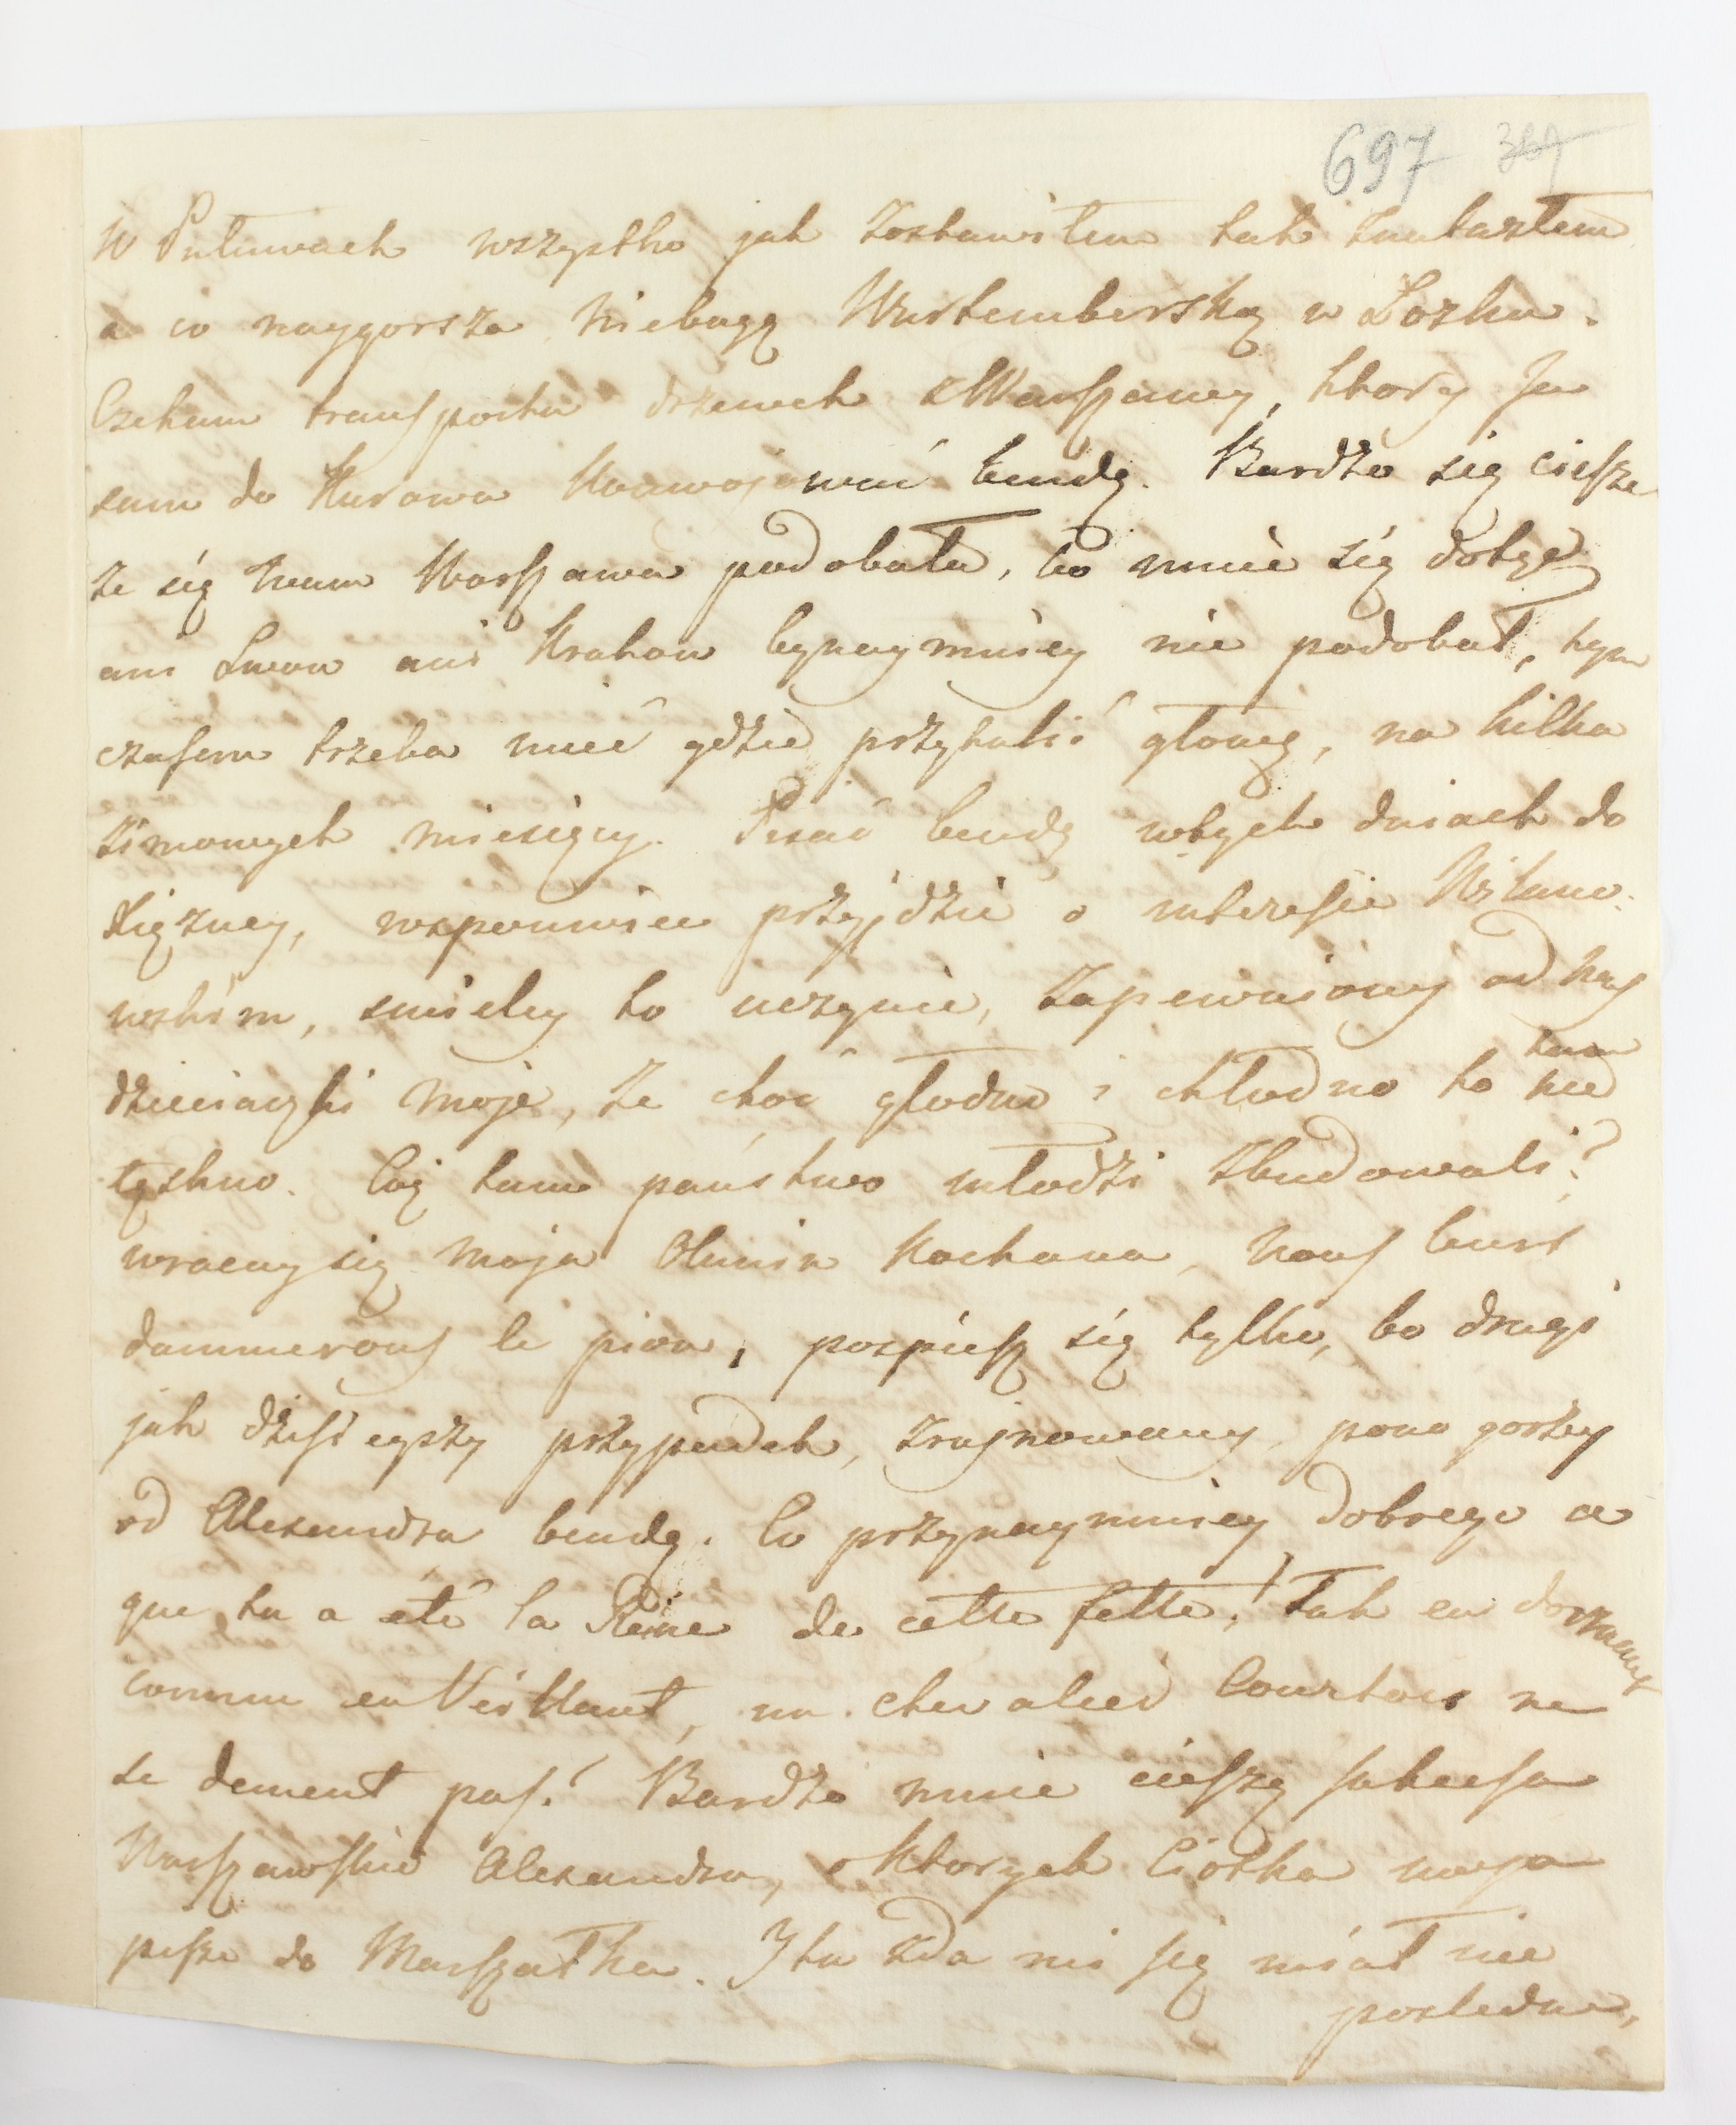 697 
W Puławach wszystko jak zostawiłem tak znalazłem
a co naygorsza niebogę Wurtemberską w Łozku.
Czekam transportu drzewek z Warszawy, ktory Ja
sam do Kurowa konwojować bendę. Bardzo się ciesze
ze się Wam Warszawa podobała, bo mnie się dotąd
ani Lwow ani Krakow bynaymniey nie podobał, tym
czasem trzeba mieć gdzie przytulić głowę, na kilka
zimowych miesięcy. Pisać bendę w tych dniach do
Xiężney, wspomniec przyjdzie o interesie Wilano-
wskim, smieley to uczynie, zapewniony od Was
dzieciaczki moje, ze choć głodno i chłodno to tam nie
tęskno. Cóż tam państwo młodzi zbudowali?
wracay się moja Olunia kochana, nous
dammerons le pion, pospiesz się tylko, bo drugi
jak dzisieyszy przypadek, zrujnowany, pono gorzey
od Alexandra bendę. Co przynaymniey dobrego ce
que tu a été la Reine de cette fette! Tak en dormant
comme en Veillant, un chevalier Courtois ne
se dement pas! Bardzo mnie cieszą sukcesa
Warszawskie Alexandra, o ktorych Ciotka moja
pisze do Marszałka. I tu zda mi się miał nie
poslednie,